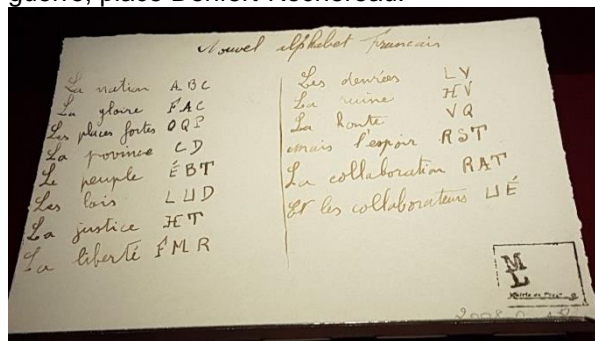 guerre, place Denfert-Rochereau.
Nouvel alphabet Francais
La nation A B C
La gloire F A C
Les places fortes O Q P
La province C D
Le peuple É B T
Les lois L U D
La justice H T
La liberté F M R
Les denrées L V
La ruine H V
La honte V Q
mais l'espoir R S T
La collaboration R A T
Et les collaborateurs U É
M
L